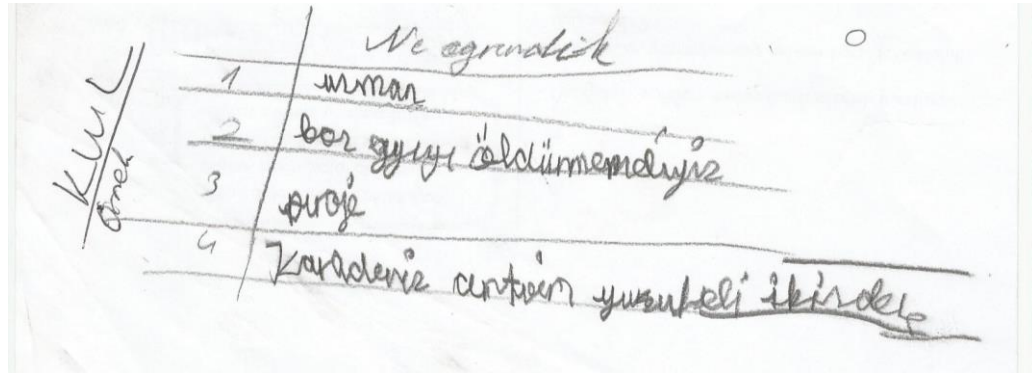 KWL
Örnek
Ne ogrendik
1 uzman
2 boz ayıyı öldürmemeliyiz
3 proje
4 Karadeniz artvin yusufeli ikizdere